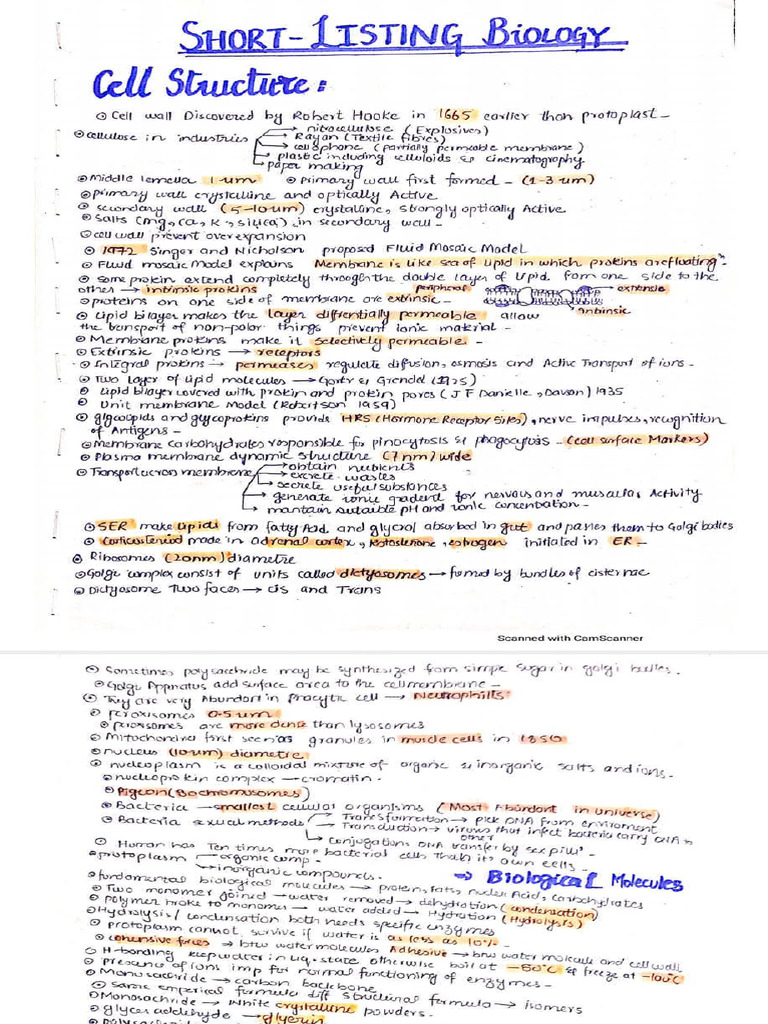 SHORT-LISTING BIOLOGY
Cell Structure:
Cell wall Discovered by Robert Hooke in 1665 earlier than protoplast-
cellulose in industries
nitrocellulose (Explosives)
Rayan (Textile fibres)
cellophane (partially permeable membrane)
plastic including celluloids & cinematography
paper making
Middle lamella 1um primary wall first formed - (1-3 um)
primary wall crystalline and optically Active
secondary wall (5-10um) crystalline, strongly optically Active
Salts (mg, ca, k, silica) in secondary wall-
cell wall prevent overexpansion
1972 Singer and Nicholson proposed Fluid Mosaic Model
Fluid mosaic Model explains Membrane is like sea of lipid in which protins are fluating"
some protein extend completely through the double layer of lipid. from one side to the
other → intrinsic proteins peripheral extensic
proteins on one side of membrane are extrinsic- intrinsic
Lipid bilayer makes the layer diffentially permeable allow
the transport of non-polar things prevent ionic material -
Membrane protiens make it selectively permeable.-
Extrinsic protiens → receptors
Integral protiens → permeases regulate difusion, osmosis and Active Transport of ions-
Two layer of lipid molecules → Gorty & Grendal (1925)
Lipid bilayer covered with protein and protein pores (J F Danielle, Davson) 1935
Unit membrane Model (Robertson 1959)
glycolipids and glycoprotins provide HRS (Hormone Receptor Sites), nerve impulses, recognition
of Antigens -
Membrane carbohydrates responsible for pinocytosis & phagocytosis - (cell surface Markers)
Plasma membrane dynamic structure (7nm) wide
Transport across membrane
obtain nutrients
excrete wastes
secrete useful substances
generate ionic gradent for nervous and muscular Activity
maintain suitable pH and ionic concentration-
SER make lipids from fatty Acid and glycerol absorbed in gut and passes them to Golgi bodies
Corticosteroid made in adrenal cortex, testosterone, estrogen initiated in ER-
Ribosomes (20nm) diametre
Golgi complex consist of units called dictyosomes → formed by bundles of cisternae
Dictyosome Two faces → cis and Trans
Scanned with CamScanner
Sometimes polysaccharide may be synthesized from simpe sugar in golgi bodies.
Golgi Apparatus add surface area to the cell membrane-
They are very Abundant in phacytic cell → Neutrophills
peroxisomes 0.5 um
peroxisomes are more dense than lysosomes
Mitochondria first seen as granules in muscle cells in 1850
nucleus (10um) diametre
nucleoplasm is a colloidal mixture of organic & inorganic salts and ions-
nucleoprotein complex → cromatin-
Pigeon (80 chromosomes)
Bacteria → smallest cellular organisms (Most Abundant in universe)
Bacteria sexual methods
Transformation → pick DNA from enviroment
Transduction → viruses that infect bacteria carry DNA to
other
conjugations DNA transfer by sex pilli -
Human has Ten times more bacterial cells than it's own cells -
protoplasm → organic comp-
→ inorganic compounds.
→ Biological Molecules
fundamental biological molecules → protein, fats, nucleic Acid, carbohydrates
Two monomer joined → water removed → dehydration (condensation)
polymer broke to monomers → water added → Hydration (Hydrolysis)
Hydrolysis/ condensation both needs specific enzymes
protoplasm cannot survive if water is as less as 10%-
cohensive forces → btw water molecules Adhesive → btw water molicule and cell wall
H-bonding keep water in liq. state otherwise boil at -80°C & freeze at -100°C
presence of ions imp for normal functioning of enzymes -
Monosaccride → carbon backbone
Same emperical formula diff structural formula → isomers
Monosachride → White crystalline powders.
glyceraldehyde → glycerin